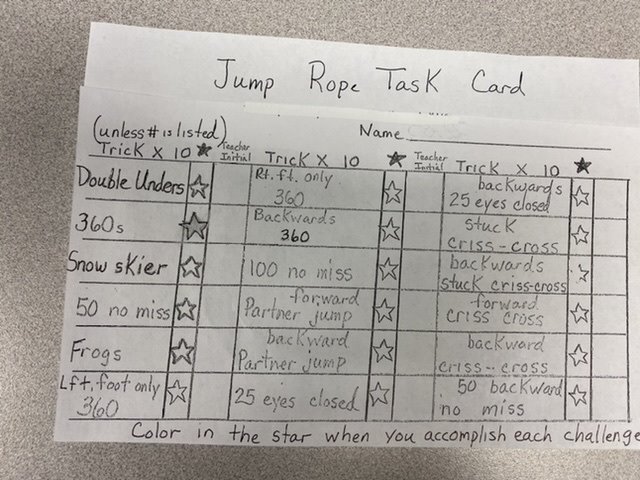 Jump Rope Task Card
(unless # is listed)
Name
Trick X 10 ★ Teacher Initial Trick X 10 ★ Teacher Initial Trick X 10 ★
Double Unders
Rt. ft. only
360
backwards
25 eyes closed
360s
Backwards
360
stuck
criss-cross
Snow skier
100 no miss
backwards
stuck criss-cross
50 no miss
forward
Partner jump
forward
criss cross
Frogs
backward
Partner jump
backward
criss-cross
Lft. foot only
360
25 eyes closed
50 backward
no miss
Color in the star when you accomplish each challenge